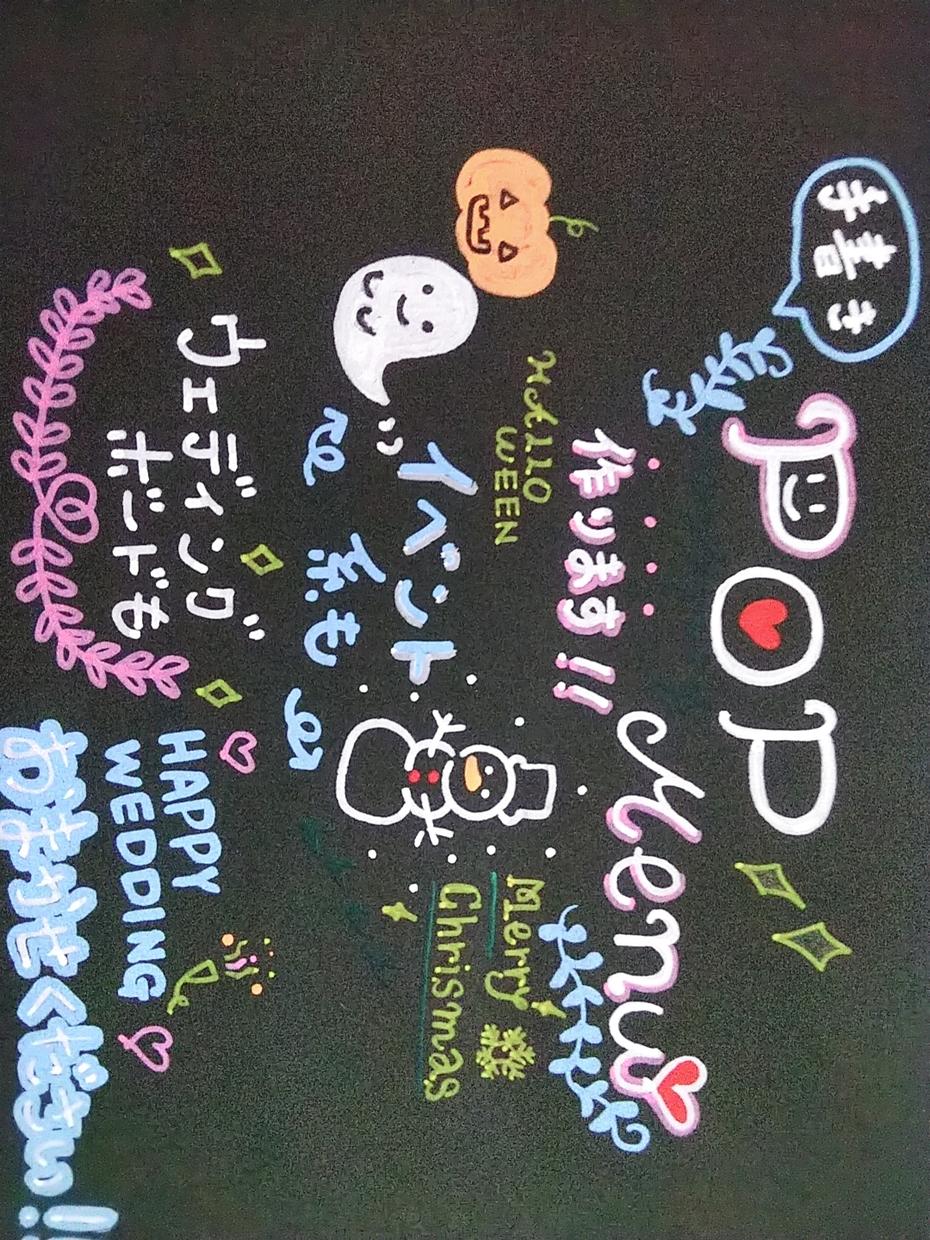 手書き
POP
Menu
作ります!!
HALLO
WEEN
イベント
系も
Merry
Chrismas
ウェディング
ボードも
HAPPY
WEDDING
おまかせください!!